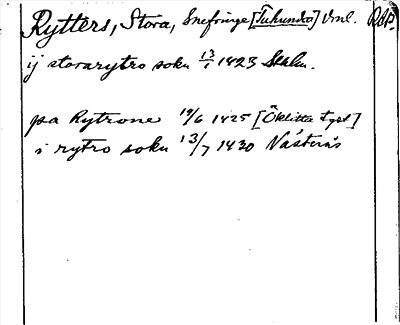 Rytters, Stora, Snefringe [Tuhundra] Vml. RAP.
ij storarytro soku 13/1 1423 Sthlm.
pa Rytrone 19/6 1425 [Öklitta Tysl]
i rytro soku 13/7 1430 Västerås